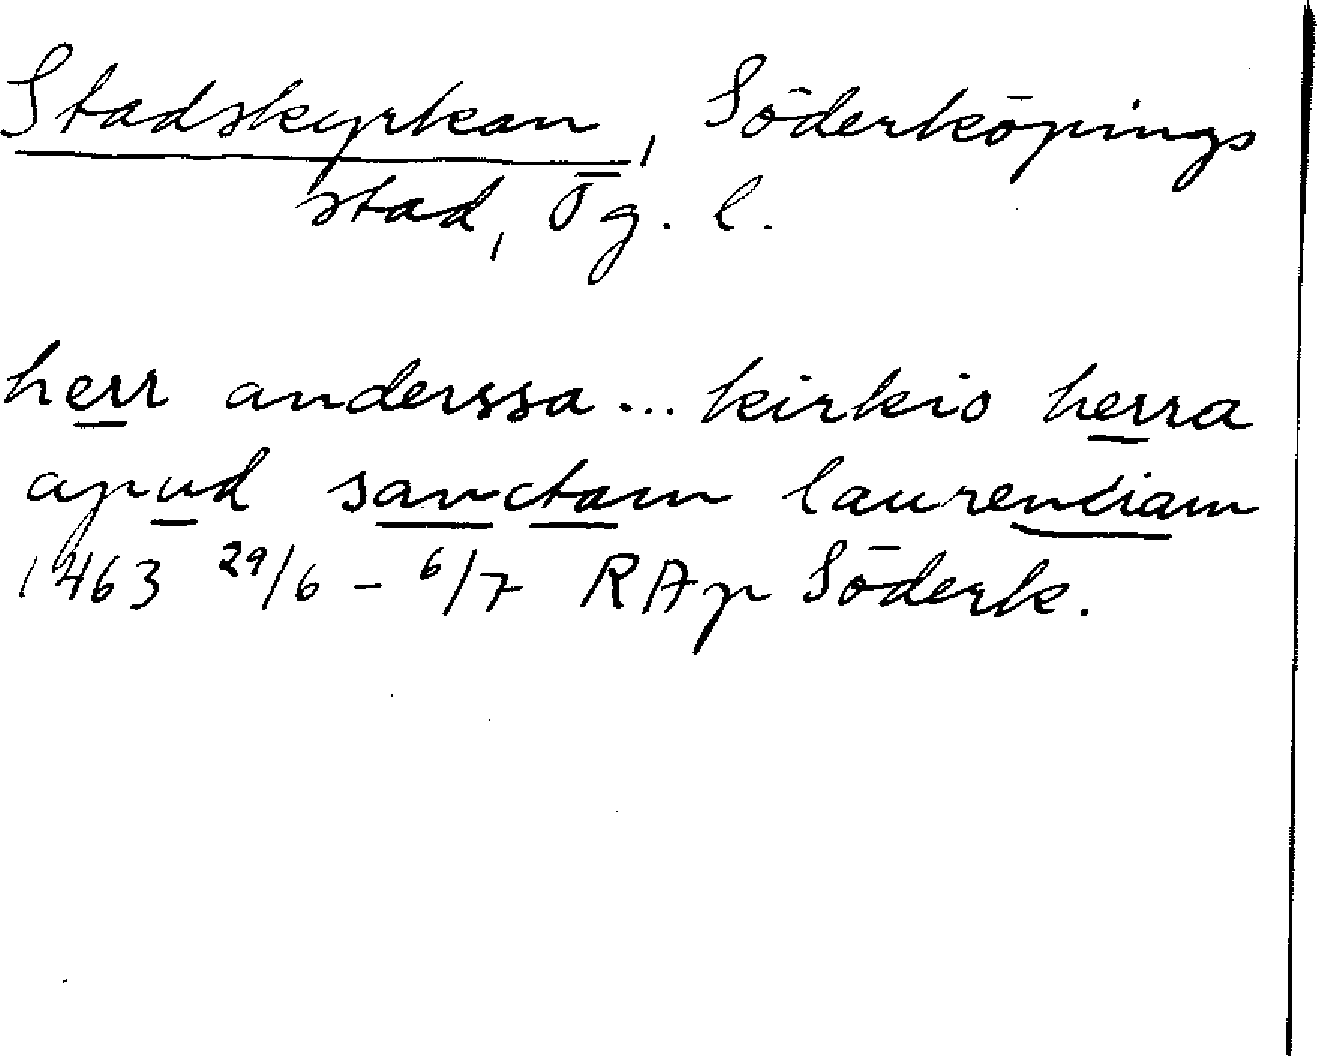 Stadskyrkan, Söderköpings
stad, Ög. l.
herr anderssa... kirkio herra
apud sanctam laurenciam
1463 29/6 - 6/7 RAp Söderk.